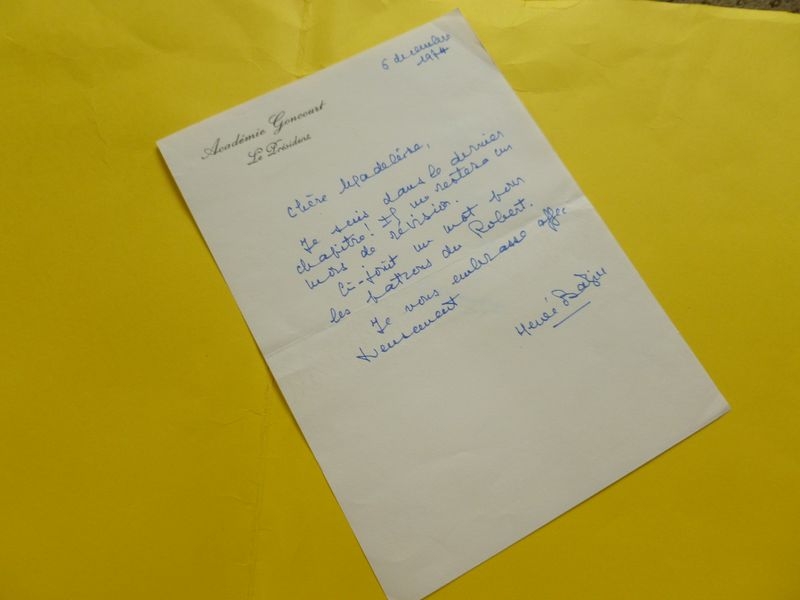 6 decembre
1974
Académie Goncourt
Le Président
Chère Madeleine,
Je suis dans le dernier
chapitre! Il me restera un
mois de révision.
Ci-joint un mot pour
les patrons du Robert.
Je vous embrasse affec
tueusement
Hervé Bazin